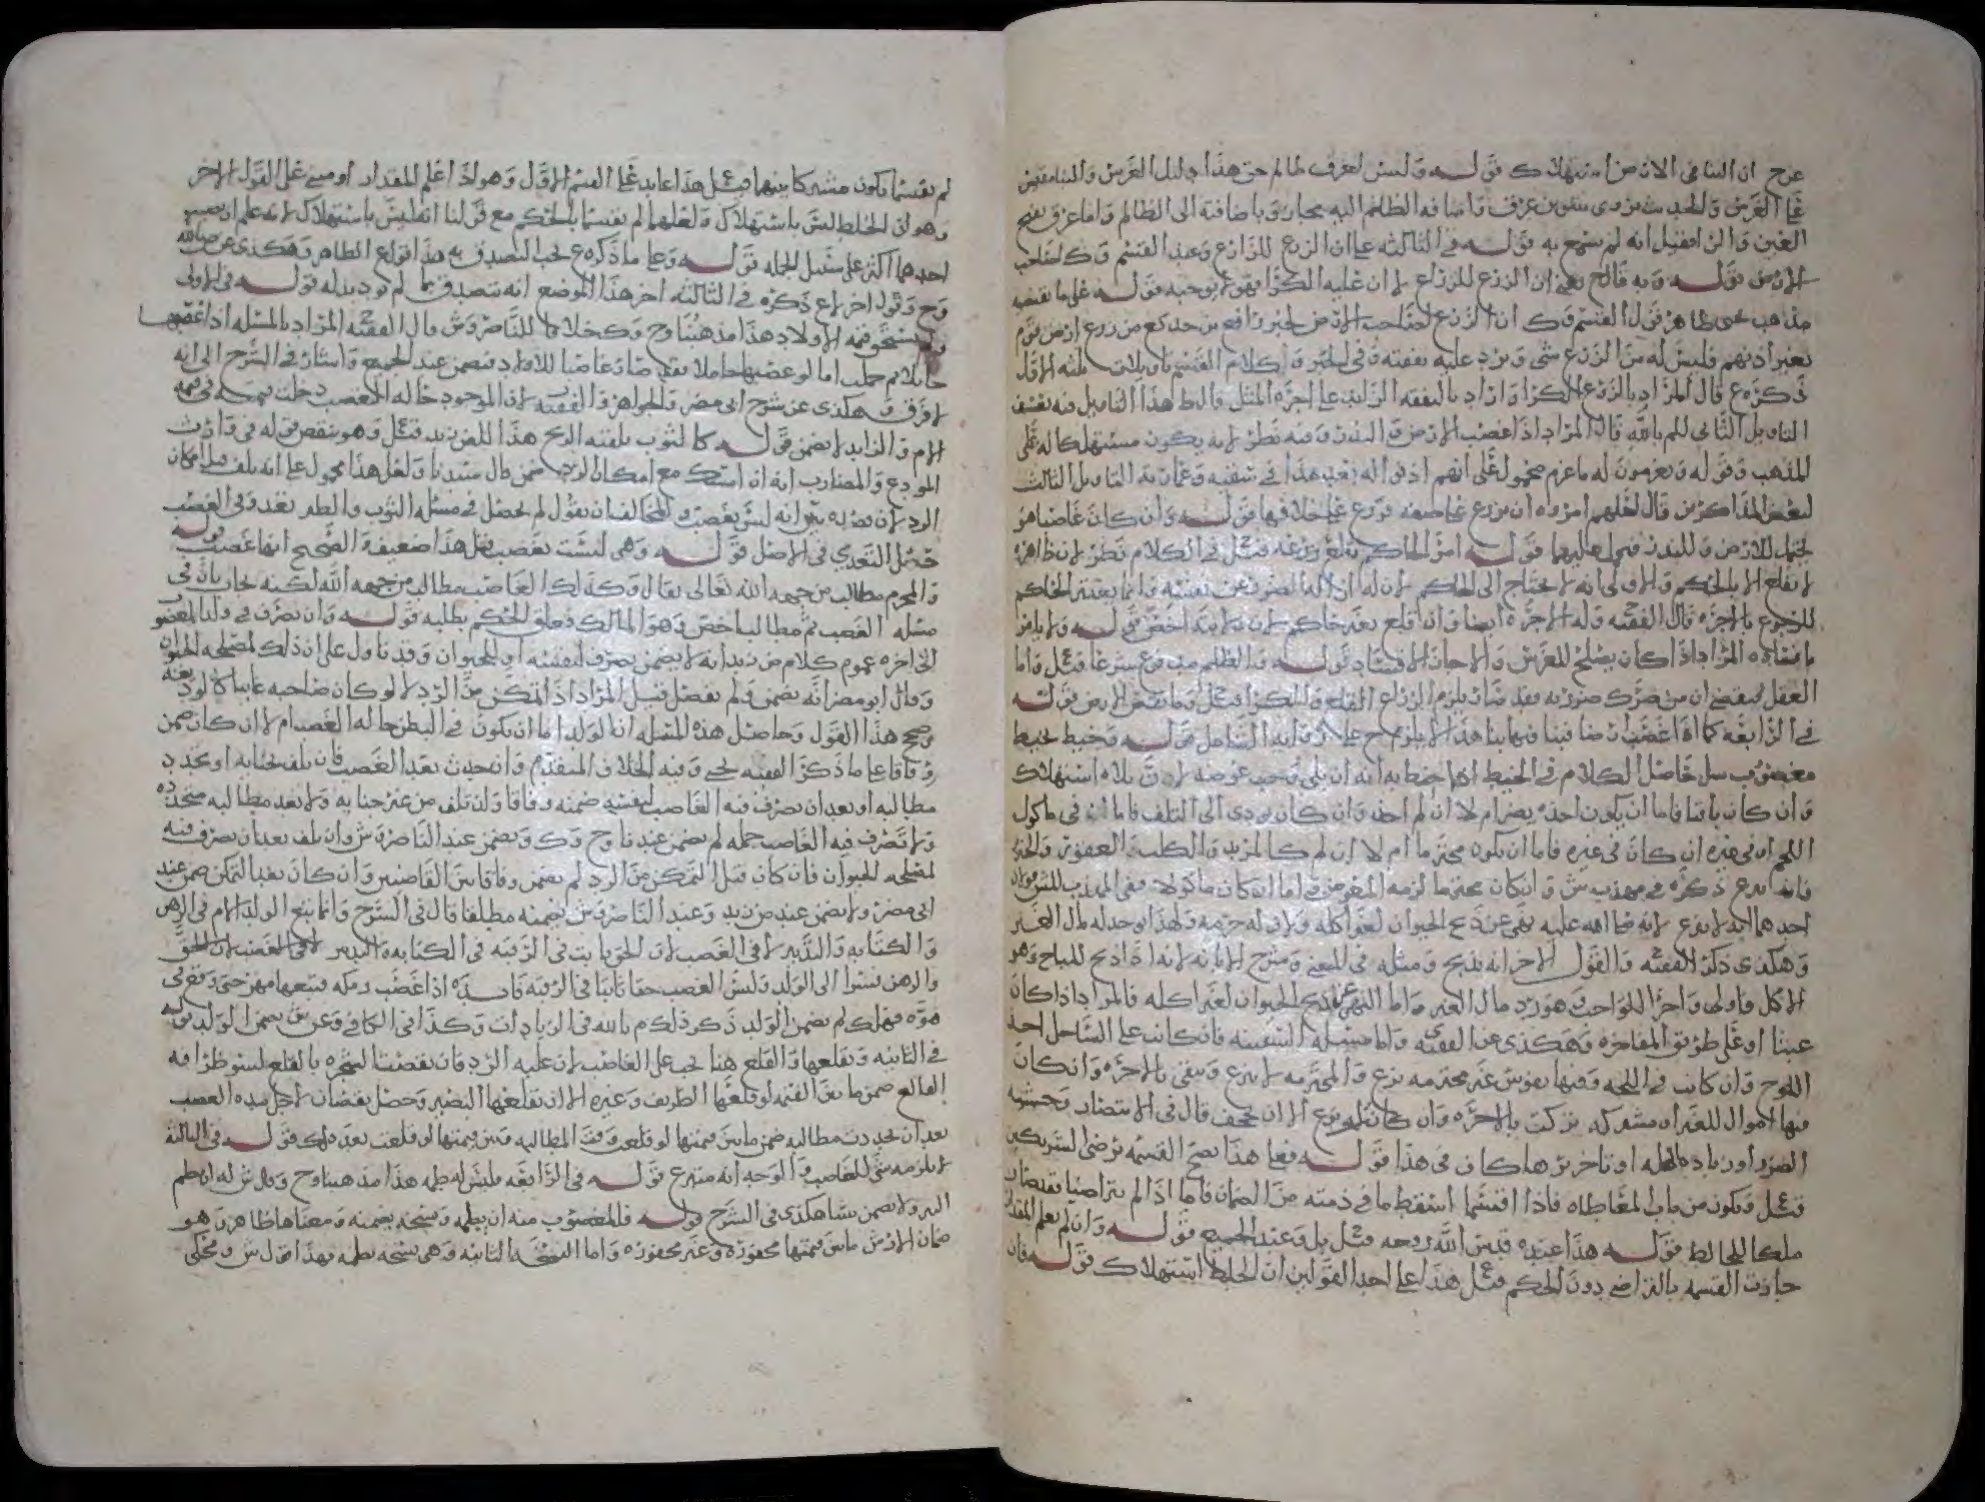 عرح ان البنا في الارض استهلاك قوله وليس لعرق ظالم حق هذا دليل الغرس والبنا مقيس
على الغرس والحديث مروي بتنوين عرق واضافه الظلم اليه مجاز وباضافته الى الظالم واما عرق بفتح
الغين قوله في الثالثه على ان الزرع للزارع وعند القسم وك لصاحب
الارض قوله وبه قال ح يعني ان الزرع للزراع لا ان عليه الكرا فهو لا يوجبه قوله على ما يقتضيه
مذهب يحيى ظاهر قول القسم وك ان الزرع لصاحب الارض لخبر رافع بن خديج من زرع ارض قوم
بغير اذنهم فليس له من الزرع شي ويرد عليه نفقته وفي الخبر وكلام القسم تاويلات ثلثه الاول
ذكره ع قال المراد بالزرع الكرا واراد بالنفقه الزايد على اجره المثل قال ط هذا التاويل فيه تعسف
التاويل الثاني للم بالله قال المراد اذا غصب الارض والبذر وفيه نظر لانه يكون مستهلكا له على
المذهب وقوله ويغرمون له ما غرم محمول على انهم اذنوا له بعد هذا في سقيه وعمارته التاويل الثالث
لبعض المذاكرين قال لعلهم امروه ان يزرع على صفه فزرع على خلافها قوله وان كان غاصبا هو
يحتمل للارض وللبذر فهو لهما قوله امر الحاكم بقلع زرعه قيل في الكلام نظر لان ظاهره
لا يقلع الا بالحكم والاولى انه لا يحتاج الى الحاكم لان له ازاله الضرر عن نفسه وانما يعتبر الحاكم
للرجوع بالاجره قال الفقيه وله الاجره ايضا وان قلع بغير حاكم لان ولايته اخص قوله ولا يلزم
ما فسد المراد اذا كان يصلح للغرس والا جاز الافساد قوله والظلم مدفوع شرعا قيل واما
العقل فيقضي ان من ضرك ضررته فقد صار يلزم الزراع القلع والكرا قيل وما نقص الارض قوله
في الرابعه كما اذا غصب ارضا فبنا فيها بنا هذا لا يلزم ح على الساحل قوله وخيط لخيط
مغصوب حاصل الكلام في الخيط اذا خيط به انه ان بلي وجب عوضه لان بلاه استهلاك
وان كان باقيا فاما ان يكون اخذه يضر ام لا ان لم اخذ وان كان يودي الى التلف فاما ان في ماكول
اللحم او في غيره ان كان في غيره فاما ان يكون محترما ام لا ان لم كالمرتد والكلب العقور والخنزير
فانه ينزع ذكره في مهذب ش وان كان محترما لزمه العوض واما ان كان ماكولا ففي المهذب للش قولان
احدهما انه لا ينزع لانه صلى الله عليه نهى عن ذبح الحيوان لغير اكله ولان له حرمه ولهذا يوخذ له مال الغير
وهكذى ذكر الفقيه والقول الاخر انه يذبح ومثله في اللمع وشرح الابانه لانه اذا ذبح للمباح وهو
الاكل فاولى واحرا للواجب وهو رد مال الغير واما النهي عن ذبح الحيوان لغير اكله فالمراد اذا كان
عبثا او على طريق المفاخره وهكذى عن الفقيه واما مسئله السفينه فان كانت على الساحل اخذ
اللوح وان كانت في اللجه وفيها نفوس غير محترمه نزع والمحترمه لا ينزع ويبقى بالاجره وان كان
فيها اموال للغير او مشتركه تركت بالاجره وان كان له نزع الا ان يجحف قال في الانتصار وخشيه
الضرر او زياده العله او تاخر برها كان في هذا قوله فعلى هذا تصح القسمه برضى الشريكين
قيل ويكون من باب المعاطاه فاذا اقتسما اسقط ما في ذمته من الضمان فاما اذا لم يتراضيا
ملكا للخالط قوله هذا عنده قدس الله روحه قيل بل وعند الجميع قوله وان لم يعلم المقدار
جازت القسمه بالتراضي دون الحكم قيل هذا على احد القولين ان الخلط استهلاك قوله فان
لم يقتسما يكون مشتركا بينهما قيل هذا عايد على القسم الاول وهو اذا علم المقدار او مبني على القول الاخر
وهو ان الخلط ليس باستهلاك ولعلهما لم يقتسما بالحكم مع قولنا انه ليس باستهلاك لانه علم ان نصيب
احدهما اكثر على سبيل الجمله قوله وعلى ما ذكره ع يجب التصدق به هذا قول ع الظاهر وهكذى عن ص بالله
وح وقول اخر لع ذكره في الثالثه اخر هذا الموضع انه يتصدق بما لم يود بدله قوله في الاولى
ويستحق قيمه الاولاد هذا مذهبنا وح وك خلافا للناصر وش قال الفقيه المراد بالمسئله اذا غصبها
حايلا ثم حملت اما لو غصبها حاملا فقد صار غاصبا للاولاد فيضمن عند الجميع واشار في الشرح الى انه
لا فرق وهكذى عن شرح ابي مضر والجواهر والفقيه لان الموجود حاله الغصب دخلت قيمته في قيمه
الام والزايد لا يضمن قوله كما لثوب يلقيه الريح هذا المعنى زيد قيل وهو ينقض قوله في وارث
المودع والمضارب انه ان امسك مع امكان الرد ضمن قال سيدنا ولعل هذا محمول على انه تلف قبل امكان
الرد لان قصده يبين انه ليس بغصب والمخالف ان يقول لم يحصل في مسئله الثوب والطير تعد وفي الغصب
حصل التعدي في الاصل قوله وهي ليست بغصب بعد هذا ضعيفه الصحيح انها غصب قوله
والمحرم مطالب من جهه الله تعالى يقال وكذلك الغاصب مطالب من جهه الله لكنه يجاب بان في
مسئله الغصب ثم مطالب اخص وهو المالك فعلق الحكم بطلبه قوله وان تصرف في ولد المغصوب
الى اخره عموم كلام ض زيد انه لا يضمن بتصرف لنفسه او للحيوان وقد تاول على ان ذلك لمصلحه الحيوان
وقال ابو مضر انه يضمن ولم يفصل قيل المراد اذا تمكن من الرد لا لو كان صاحبه غايبا كالوديعه
وصح هذا القول وحاصل هذه المسئله ان الولد اما ان يكون في البطن حاله الغصب ام لا ان كان ضمن
وفاقا على ما ذكر الفقيه يحيى وفيه الخلاف المتقدم وان حدث بعد الغصب فان تلف بجنايه او بجحد
مطالبه او بعد ان تصرف فيه الغاصب لنفسه ضمنه وفاقا وان تلف من غير جنايه ولا بعد مطالبه
ولا تصرف فيه الغاصب جمله لم يضمن عندنا وح وك ويضمن عند الناصر وش وان تلف بعد ان تصرف فيه
لمصلحه الحيوان فان كان قبل التمكن من الرد لم يضمن وفاقا بين القاضيين وان كان بعد التمكن ضمن عند
ابي مضر ولا يضمن عند ض زيد وعند الناصر وش يضمنه مطلقا قال في الشرح وانما يتبع الولد الام في الرهن
والكتابه والتدبير لا في الغصب لان الحق ثابت في الرقبه في الكتابه والتدبير لا في الغصب لان الحق
والرهن يسرا الى الولد وليس الغصب حقا ثابتا في الرقبه فايده اذا غصب رمكه فتبعها مهرها حتى وقع في
هوه فهلك لم يضمن الولد ذكر ذلك م بالله في الزيادات وكذا في الكافي وعن ش يضمن الولد قوله
في الثانيه ويقلعها والقلع هنا يجب على الغاصب لان عليه الرد فان نقصت الشجره بالقلع لسو نظرا فيه
القالع ضمن ما بين القيمه لو قلعها الطريف وغيره الا ان يقلعها البصير وحصل نقصان لاجل مده الغصب
بعد ان حدث مطالبه ضمن ما بين قيمتها لو قلعت وقت المطالبه وبين قيمتها لو قلعت بعد ذلك قوله في الثالثه
لا يلزمه شي للغاصب والوجه انه متبرع قوله في الرابعه فليس له طمه هذا مذهبنا وح وقال ش له ان يطم
البير ولا يضمن شيا هكذى في الشرح قوله فللمغصوب منه ان يطمه ونسخه يضمنه ومعناها ظاهر وهو
ضمان الارش ما بين قيمتها محفوره وغير محفوره واما النسخه الثانيه وهي نسخه يطمه فهذا قول ش ومحكي